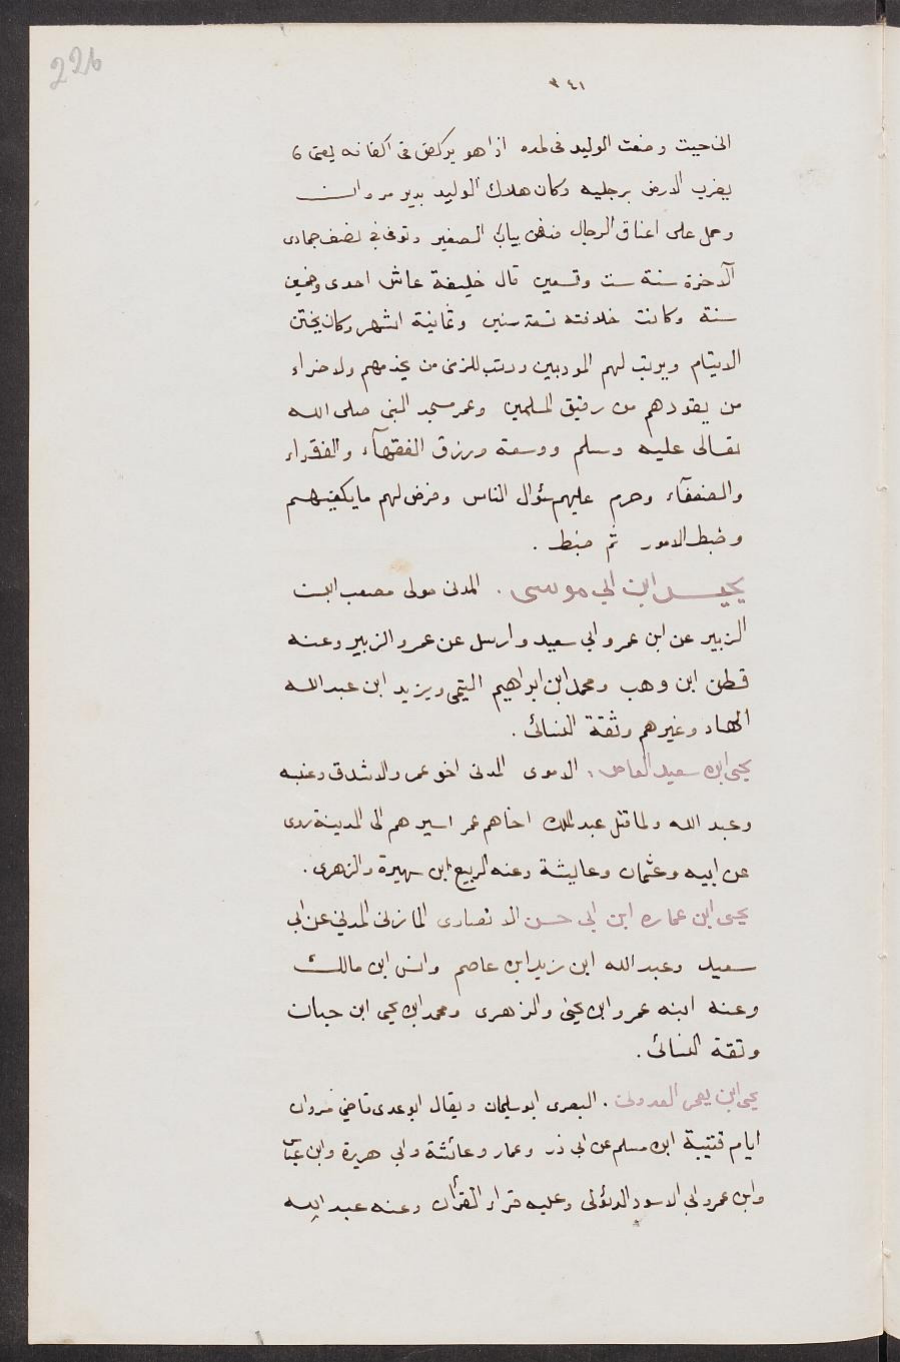 226
٣٤١
انى حيث وضعت الوليد فى لحده اذا هو يركض فى اكفانه يعنى
يضرب الارض برجليه وكان هلاك الوليد بدير مروان
وحمل على اعناق الرجال فدفن بباب الصغير وتوفى فى نصف جمادى
الآخرة سنة ست وتسعين قال خليفة عاش احدى وخمسين
سنة وكانت خلافته تسع سنين وثمانية اشهر وكان يختن
الايتام ويرتب لهم المودبين ورتب للزمنى من يخدمهم ولاضراء
من يقودهم من رقيق المسلمين وعمر مسجد النبى صلى الله
تعالى عليه وسلم ووسعه ورزق الفقهآء والفقراء
والضعفآء وحرم عليهم سؤال الناس وفرض لهم ما يكفيهم
وضبط الامور ثم ضبط .
يحيس ابن ابي موسى . المدنى مولى مصعب ابن
الزبير عن ابن عمر وابي سعيد وارسل عن عمر والزبير وعنه
قطن ابن وهب ومحمد ابن ابراهيم التيمى ويزيد ابن عبد الله
الهاد وغيرهم وثقة النسائى .
يحيى ابن سعيد العاص . الاموى المدنى اخو عمر والاشدق وعنبه
وعبد الله ولما قتل عبد الملك اخاهم عمر اسيرهم الى المدينة روى
عن ابيه وعثمان وعايشة وعنه الربيع ابن سهيرة والزهرى .
يحيى ابن عماره ابن ابى حسن الانصارى المازنى المدني عن ابى
سعيد وعبد الله ابن زيد ابن عاصم وانس ابن مالك
وعنه ابنه عمرو ابن يحيى والزهرى ومحمد ابن يحيى ابن حبان
وثقة النسائى .
يحيى ابن يعمر العدوى . البصرى ابو سليمان ويقال ابو عدى قاضى مروان
ايام قتيبة ابن مسلم عن ابى ذر وعمار وعائشة وابي هريرة وابن عباس
وابن عمر وابي الاسود الدئولى وعليه قراء القرأن وعنه عبد الله